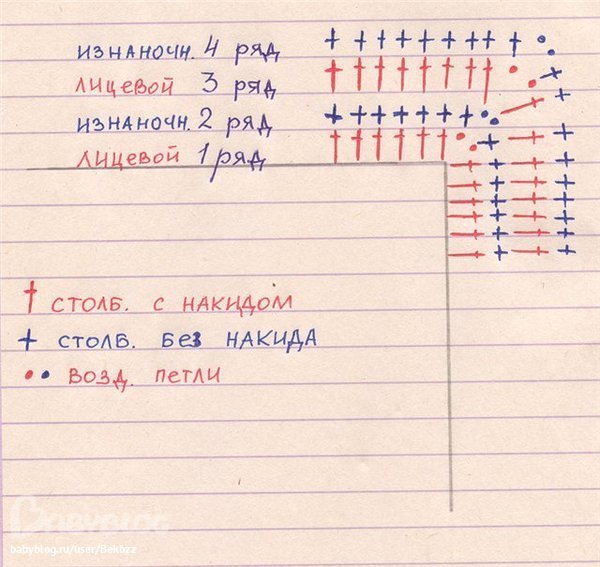 ИЗНАНОЧН. 4 РЯД
ЛИЦЕВОЙ 3 РЯД
ИЗНАНОЧН. 2 РЯД
ЛИЦЕВОЙ 1 РЯД
СТОЛБ. С НАКИДОМ
СТОЛБ. БЕЗ НАКИДА
ВОЗД. ПЕТЛИ
BABYBLOG
babyblog.ru/user/Bekbzz